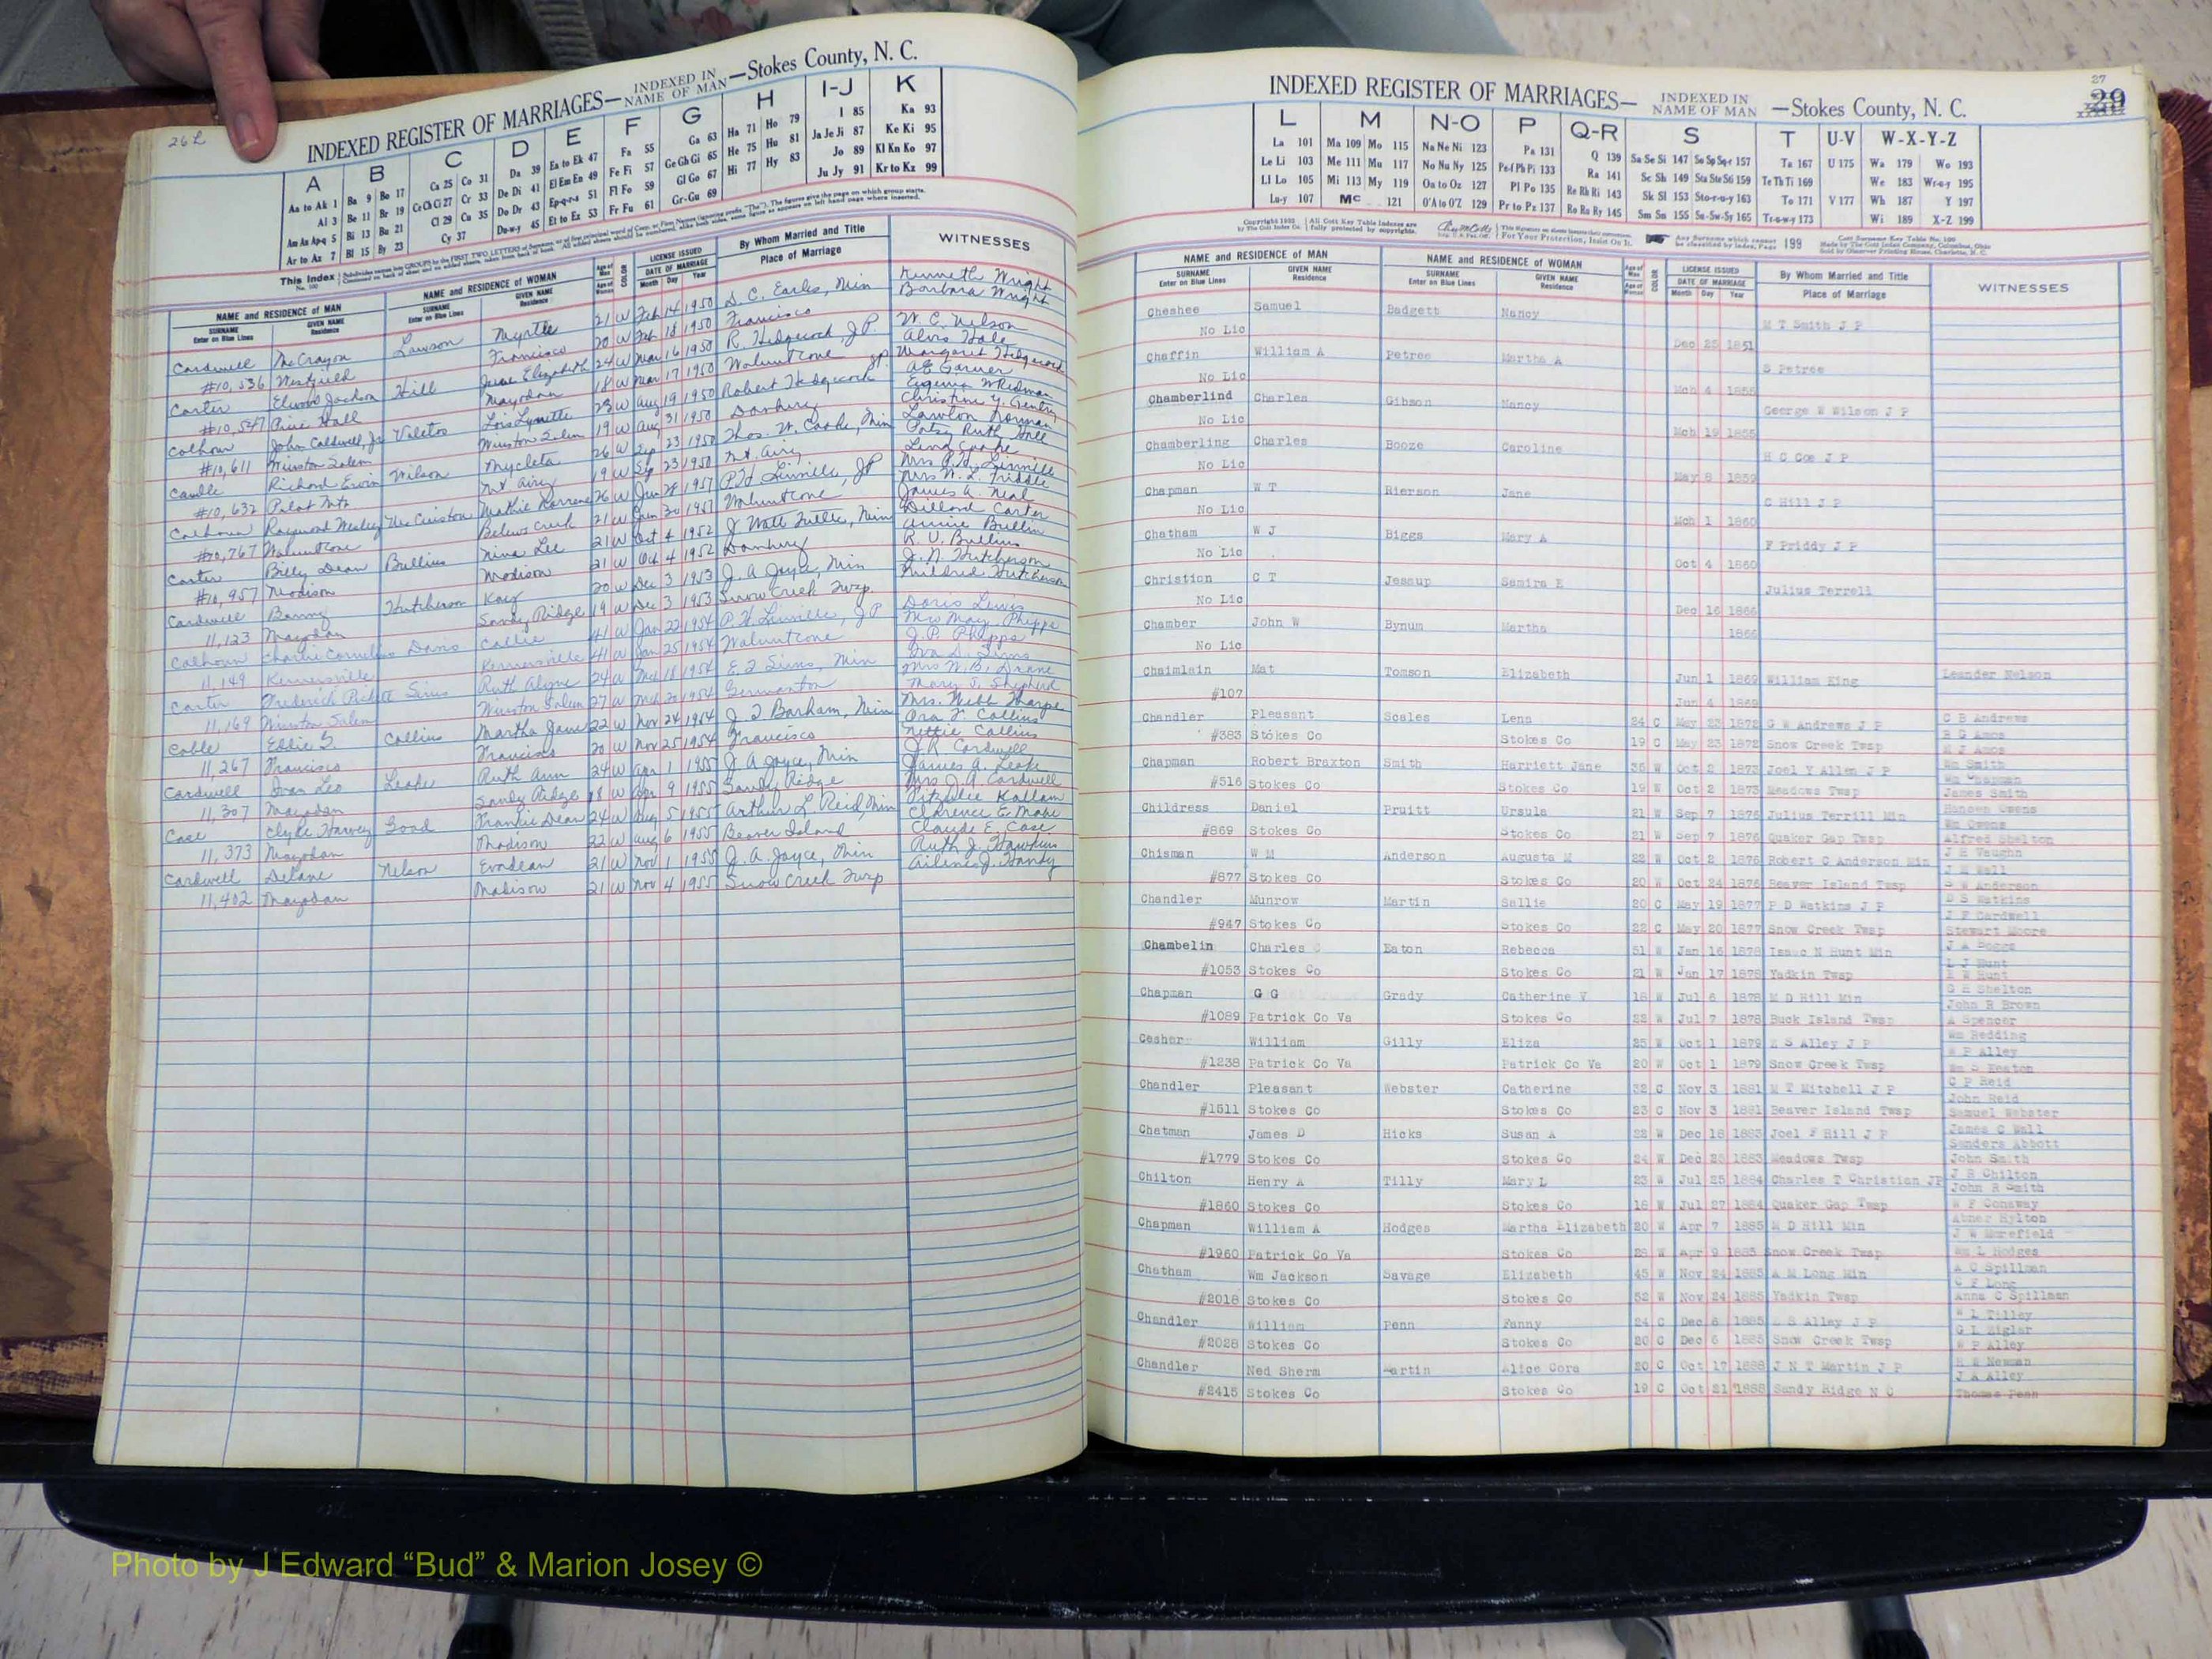 26 L
INDEXED REGISTER OF MARRIAGES— INDEXED IN NAME OF MAN —Stokes County, N. C.
A B C D E F G H I-J K
Aa to Ak 1 Ba 9 Bo 17 Ca 25 Co 31 Da 39 Ea to Ek 47 Fa 55 Ga 63 Ha 71 Ho 79 I 85 Ka 93
Al 3 Be 11 Br 19 Ce Ch Ci 27 Cr 33 De Di 41 El Em En 49 Fe Fi 57 Ge Gh Gi 65 He 75 Hu 81 Ja Je Ji 87 Ke Ki 95
Am An Ap-q 5 Bi 13 Bu 21 Cl 29 Cu 35 Do Dr 43 Ep-q-r-s 51 Fl Fo 59 Gl Go 67 Hi 77 Hy 83 Jo 89 Kl Kn Ko 97
Ar to Az 7 Bl 15 By 23 Cy 37 Du-w-y 45 Et to Ez 53 Fr Fu 61 Gr-Gu 69 Ju Jy 91 Kr to Kz 99
NAME and RESIDENCE OF MAN NAME and RESIDENCE OF WOMAN LICENSE ISSUED By Whom Married and Title WITNESSES
SURNAME GIVEN NAME SURNAME GIVEN NAME COLOR DATE OF MARRIAGE Place of Marriage
Enter on Blue Lines Residence Enter on Blue Lines Residence Month Day Year
Cardwell McCrayon Lawson Myrtle 21 W Feb 14 1950 D. C. Earles, Min Kenneth Wright
Barbara Wright
#10,536 Westfield Francisco 20 W Feb 18 1950 Francisco
Carter Elwood Jackson Hill June Elizabeth 24 W Mar 16 1950 R. Hedgecock J.P. W. C. Nelson
Alvis Hale
#10,547 Pine Hall Mayodan 18 W Mar 17 1950 Walnut Cove Margaret Hedgecock
Calhoun John Caldwell, Jr Lois Lynette 23 W Aug 19 1950 Robert Hedgecock JP.
#10,611 Winston Salem Winston Salem 19 W Aug 31 1950 Danbury
Caudle Richard Ervin Wilson Mycleta 26 W Sep 23 1950 Thos. W. Cooke, Min Lawton Norman
Patsy Ruth Hall
#10,632 Pilot Mtn Mt Airy 19 W Sep 23 1950 Mt. Airy
Calhoun Raymond Wesley 26 W Jun 28 1951 P. H. Linville, JP Mrs P. H. Linville
#10,767 Walnut Cove Belews Creek 21 W Jun 30 1951 Walnut Cove James A. Neal
Carter Billy Dean Bullins Nina Lee 21 W Oct 4 1952 J Watt Tuttle, Min Dillard Carter
Annie Bullin
#10,957 Madison Madison 21 W Oct 4 1952 Danbury
Cardwell Hutcherson Kay 20 W Dec 3 1953 J. A. Joyce, Min J. N. Hutcherson
Mildred Hutcherson
11,123 Mayodan Sandy Ridge 19 W Dec 3 1953 Snow Creek Twsp
Calhoun Charlie Cornelius Davis Callie 41 W Jan 22 1954 P. H. Linville, JP Doris Lewis
11,149 Kernersville Kernersville 41 W Jan 25 1954 Walnut Cove J. P. Phipps
Carter Frederick Pickett Sims Ruth Alyne 24 W Mch 18 1954 E. F. Sims, Min
11,169 Winston Salem Winston Salem 27 W Mch 1954 Germanton
Coble Eddie S. Collins Martha Jane 22 W Nov 24 1954 J. T. Barham, Min
11,267 Francisco Francisco 20 W Nov 25 1954 Francisco Nettie Collins
Cardwell Leake Ruth Ann 24 W Apr 1 1955 J. A. Joyce, Min J. R. Cardwell
James A. Leake
11,307 Mayodan Sandy Ridge 18 W Apr 9 1955 Sandy Ridge Mrs. J. A. Cardwell
Case Clyde Harvey Goad Frankie Dean 24 W Aug 5 1955 Arthur L. Reid, Min
11,373 Mayodan Madison 22 W Aug 6 1955 Beaver Island Claude E. Case
Cardwell Delane Nelson Evadean 21 W Nov 1 1955 J. A. Joyce, Min Ruth J. Hawkins
Ailene J. Handy
11,402 Mayodan Madison 21 W Nov 4 1955 Snow Creek Twsp
27
29
INDEXED REGISTER OF MARRIAGES— INDEXED IN NAME OF MAN —Stokes County, N. C.
L M N-O P Q-R S T U-V W-X-Y-Z
La 101 Ma 109 Mo 115 Na Ne Ni 123 Pa 131 Q 139 Sa Se Si 147 So Sp Sq-r 157 Ta 167 U 175 Wa 179 Wo 193
Le Li 103 Me 111 Mu 117 No Nu Ny 125 Pe-f Ph Pi 133 Ra 141 Sc Sh 149 Sta Ste Sti 159 Te Th Ti 169 We 183 Wr-o-y 195
Ll Lo 105 Mi 113 My 119 Oa to Oz 127 Pl Po 135 Re Rh Ri 143 Sk Sl 153 Sto-r-u-y 163 To 171 V 177 Wh 187 Y 197
Lu-y 107 Mc 121 O'A to O'Z 129 Pr to Pz 137 Ro Ru Ry 145 Sm Sn 155 Su-Sw-Sy 165 Tr-u-w-y 173 Wi 189 X-Z 199
NAME and RESIDENCE OF MAN NAME and RESIDENCE OF WOMAN LICENSE ISSUED By Whom Married and Title WITNESSES
SURNAME GIVEN NAME SURNAME GIVEN NAME COLOR DATE OF MARRIAGE Place of Marriage
Enter on Blue Lines Residence Enter on Blue Lines Residence Month Day Year
Cheshee Samuel Badgett Nancy M T Smith J P
No Lic Dec 25 1851
Chaffin William A Petree Martha A S Petree
No Lic Mch 4 1855
Chamberlind Charles Gibson Nancy George W Wilson J P
No Lic Mch 19 1855
Chamberling Charles Booze Caroline H C Com J P
No Lic May 8 1859
Chapman W T Rierson Jane C Hill J P
No Lic Mch 1 1860
Chatham W J Biggs Mary A F Priddy J P
No Lic Oct 4 1860
Christion C T Jessup Samira E Julius Terrell
No Lic Dec 16 1866
Chamber John W Bynum Martha 1866
No Lic
Chaimlain Mat Tomson Elizabeth Jun 1 1869 William King Leander Nelson
#107 Jun 4 1869
Chandler Pleasant Scales Lena 24 C May 23 1872 G W Andrews J P C B Andrews
R G Amos
#383 Stokes Co Stokes Co 19 C May 23 1872 Snow Creek Twsp M J Amos
Chapman Robert Braxton Smith Harriett Jane 35 W Oct 2 1873 Joel Y Allen J P Wm Smith
Wm Chapman
#516 Stokes Co Stokes Co 19 W Oct 2 1873 Meadows Twsp James Smith
Childress Daniel Pruitt Ursula 21 W Sep 7 1876 Julius Terrill Min Hansen Owens
Wm Owens
#869 Stokes Co Stokes Co 21 W Sep 7 1876 Quaker Gap Twsp Alfred Shelton
Chisman W M Anderson Augusta M 22 W Oct 2 1876 Robert C Anderson Min J H Vaughn
J M Wall
#877 Stokes Co Stokes Co 20 W Oct 24 1876 Beaver Island Twsp Anderson
Chandler Munrow Martin Sallie 20 C May 19 1877 P D Watkins J P D S Watkins
J F Cardwell
#947 Stokes Co Stokes Co 22 C May 20 1877 Snow Creek Twsp Stewart Moore
Chambelin Charles Eaton Rebecca 51 W Jan 16 1878 Isaac N Hunt Min J A Boggs
L J Hunt
#1053 Stokes Co Stokes Co 21 W Jan 17 1878 Yadkin Twsp R W Hunt
Chapman G G Grady Catherine V 18 W Jul 6 1878 M D Hill Min G H Shelton
John R Brown
#1089 Patrick Co Va Stokes Co 22 W Jul 7 1878 Buck Island Twsp A Spencer
Cesher William Gilly Eliza 25 W Oct 1 1879 S Alley J P Wm Redding
W P Alley
#1238 Patrick Co Va Patrick Co Va 20 W Oct 1 1879 Snow Creek Twsp Wm S Heaton
Chandler Pleasant Webster Catherine 32 C Nov 3 1881 M T Mitchell J P C P Reid
John Reid
#1511 Stokes Co Stokes Co 23 C Nov 3 1881 Beaver Island Twsp Samuel Webster
Chatman James D Hicks Susan A 22 W Dec 18 1883 Joel F Hill J P James C Wall
Sanders Abbott
#1779 Stokes Co Stokes Co 24 W Dec 23 1883 Meadows Twsp John Smith
Chilton Henry A Tilly Mary L 23 W Jul 25 1884 Charles T Christion JP J S Chilton
John R Smith
#1860 Stokes Co Stokes Co 18 W Jul 27 1884 Quaker Gap Twsp W F Conaway
Chapman William A Hodges Martha Elizabeth 20 W Apr 7 1885 M D Hill Min Abner Hylton
J W Murefield
#1960 Patrick Co Va Stokes Co 28 W Apr 9 1885 Snow Creek Twsp Wm L Hodges
Chatham Wm Jackson Savage Elizabeth 45 W Nov 24 1885 A M Long Min A C Spillman
C F Long
#2018 Stokes Co Stokes Co 52 W Nov 24 1885 Yadkin Twsp Anna C Spillman
Chandler William Penn Fanny 24 C Dec 6 1885 L S Alley J P W L Tilley
G L Zigler
#2028 Stokes Co Stokes Co 20 C Dec 6 1885 Snow Creek Twsp W P Alley
Chandler Ned Sherm Martin Alice Cora 20 C Oct 17 1888 J N T Martin J P R W Newman
J A Alley
#2415 Stokes Co Stokes Co 19 C Oct 21 1888 Sandy Ridge N C Thomas Penn
Photo by J Edward “Bud” & Marion Josey ©